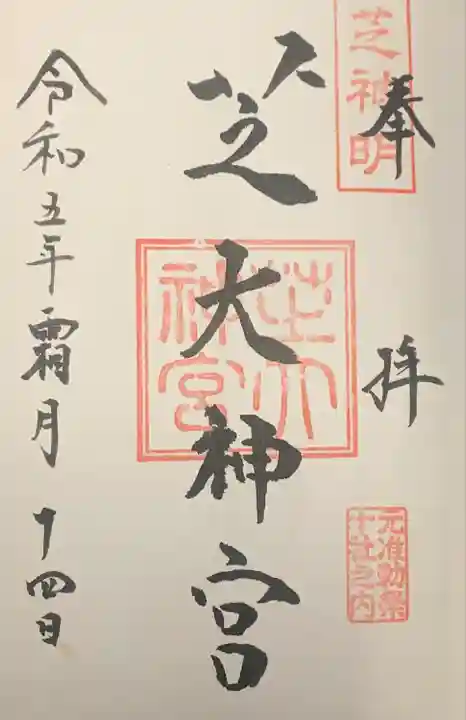 奉拝
芝神明
元准勅祭
十社之内
芝大神宮
芝大
神宮
令和五年霜月十四日